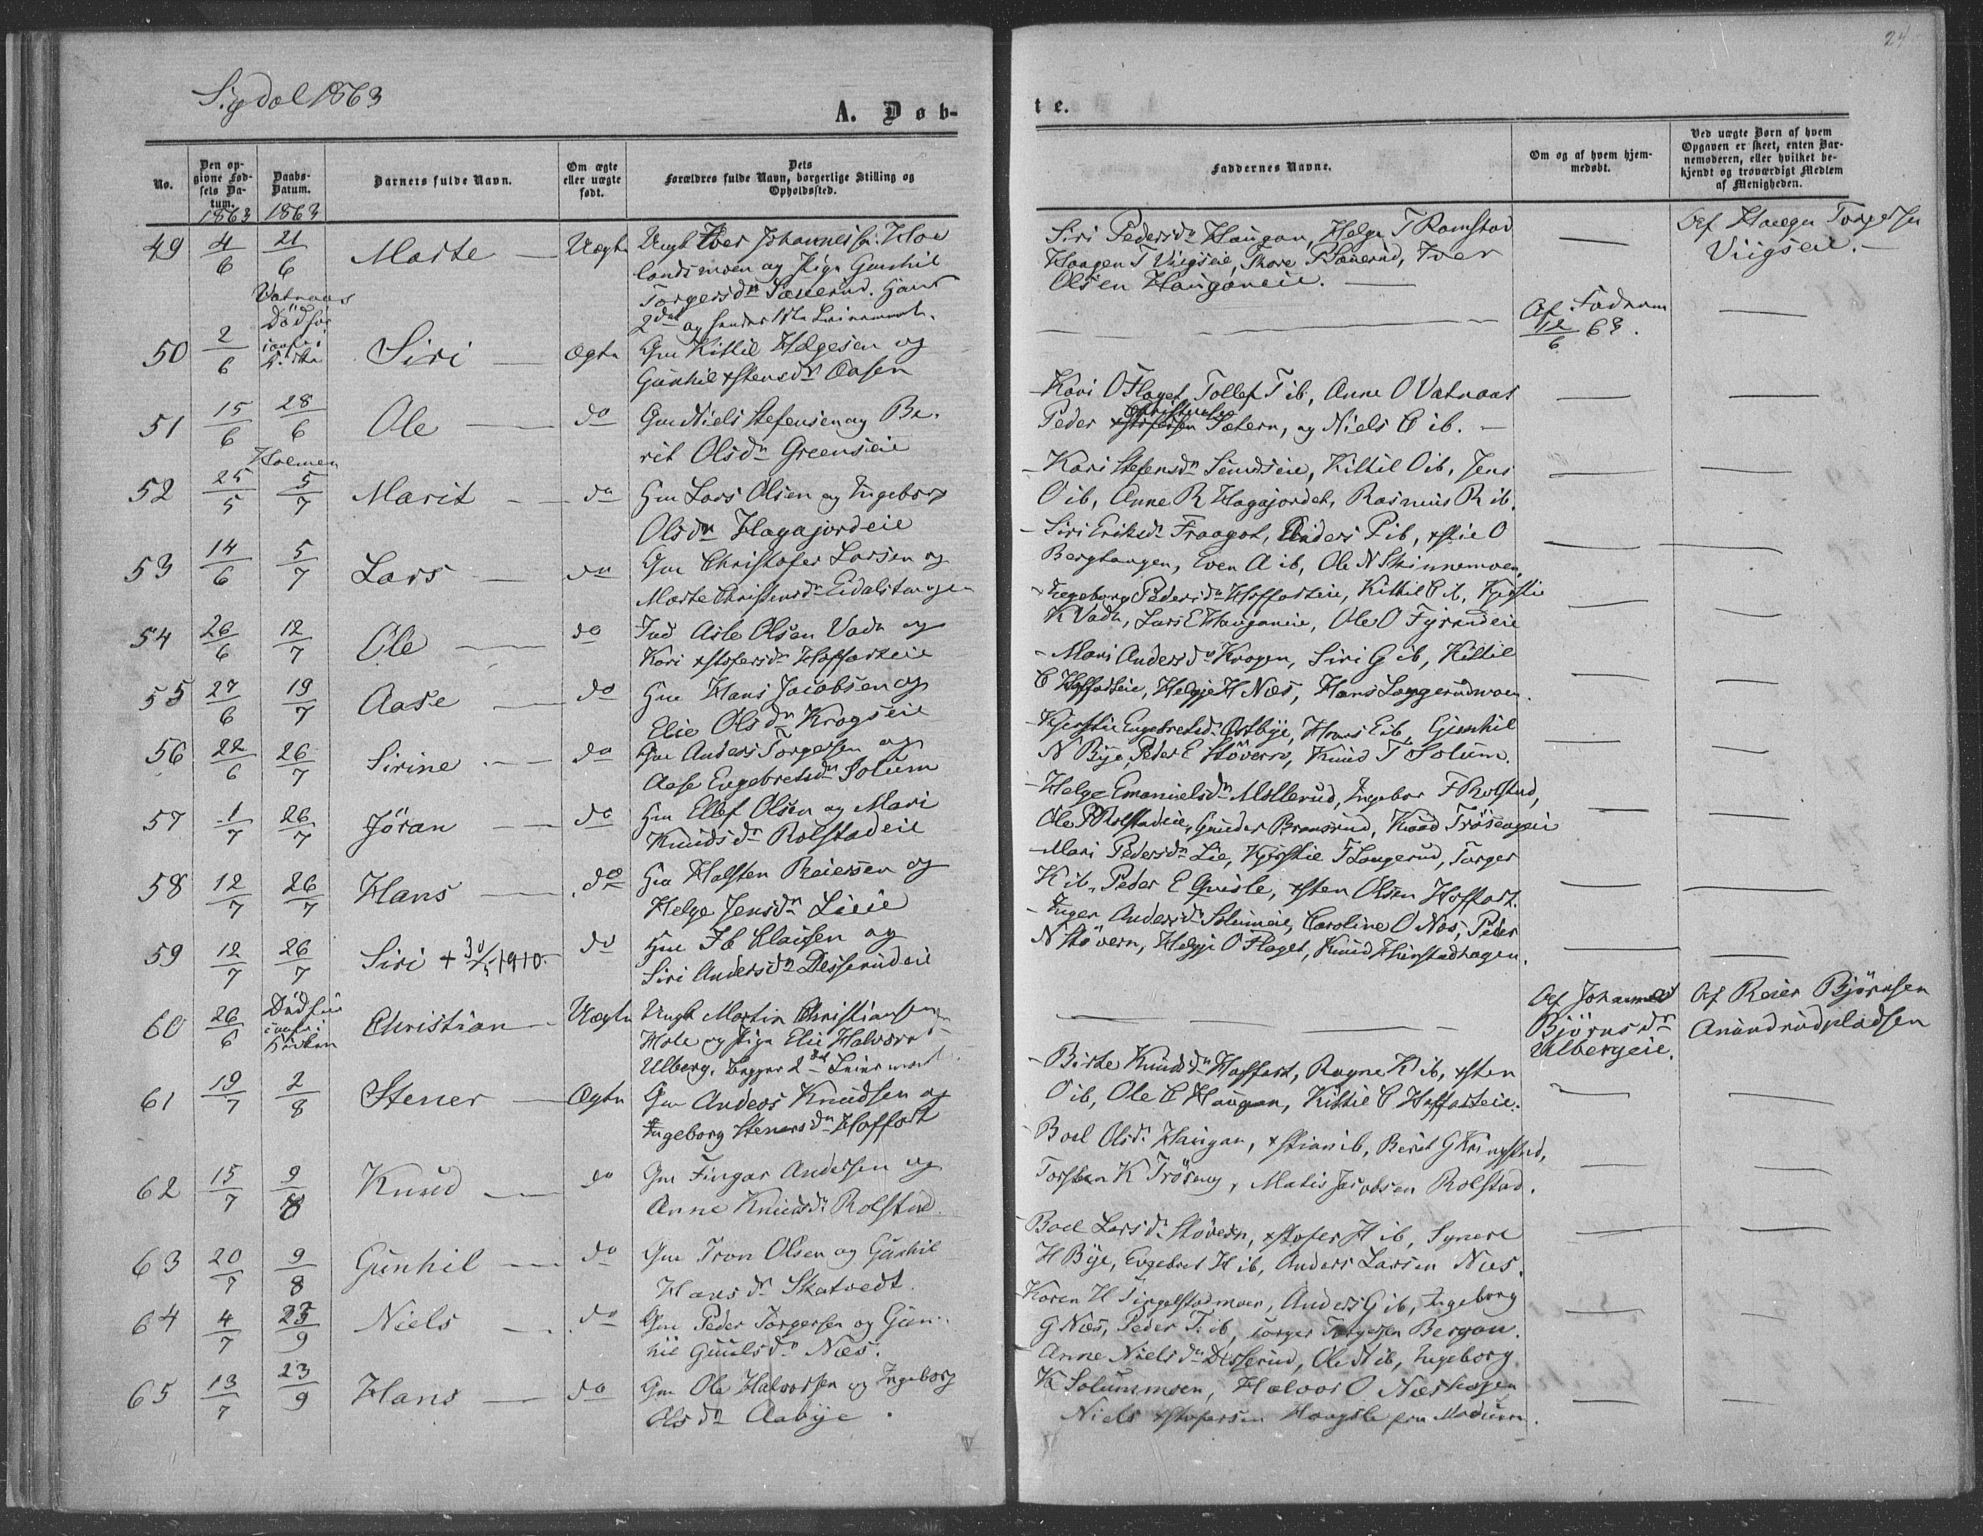 24
Sigdal 1863
A. Døb-
te.
No.
Den op-
givne Fød-
sels Da-
tum.
1863
Daabs-
Datum.
1863
Barnets fulde Navn.
Om ægte
eller uægte
født.
Dets
Forældres fulde Navn, borgerlige Stilling og
Opholdssted.
Faddernes Navne.
Om og af hvem hjem-
medøbt.
Ved uægte Børn af hvem
Opgaven er skeet, enten Bar-
nemoderen, eller hvilket be-
kjendt og troværdigt Medlem
af Menigheden.
49 4/6 21/6 Marte Uægte Ungk Iver Johannessen
landsmoen og Pige Gunhil
Torgersdr
2det og hendes 1ste Leiermaal.
Siri Pedersdr Haugan, Helge T Ramstad
Haagen T Viigseie, Thore Iver
Olsen Hauganeie.
Af Haagen Torgersen
Viigseie.
Vatnaas
50 2/6 Död før Siri Ægte Gm Kittil Helgesen og
Gunhil xstensdr Aasen
Af Faderen
12/6 63.
51 15/6 28/6 Ole do Gm Niels Stefensen og Be-
rit Olsdr Greenseie
Kari O Flaget, Tollef T ib, Anne O Vatnaas
Peder Sætern, og Niels C ib.
Holmen
52 25/5 5/7 Marit do Gm Lars Olsen og Ingeborg
Olsdr Hagajordeie
Kari Stefensdr Kittil O ib, Jens
O ib, Anne R Hagajordet, Rasmus R ib.
53 14/6 5/7 Lars do Gm Christofer Larsen og
Marte Christensdr Eidalstangen
Siri Eriksdr Anders P ib, xstie O
Bergtangen, Even A ib, Ole N Skinnemoen,
54 26/6 12/7 Ole do Ind Asle Olsen Vada og
Kari xstofersdr Hoffarteie
Ingeborg Pedersdr Hoffarteie, Kittil C ib, Kjersti
K Vada, Lars E Hauganeie, Ole O
55 27/6 19/7 Aase do Hm Hans Jacobsen og
Elie Olsdr Krogseie
Mari Andersdr Krogen, Siri G ib, Kittil
C Hoffarteie, Helge H Næs, Hans Langerudmoen.
56 22/6 26/7 Sirine do Gm Anders Torgersen og
Aase Engebretsdr Solum
Kjerstie Engebretsdr Østbye, Hans E ib, Gunhil
N Bye, Peder E Støvern, Knud T Solum.
57 1/7 26/7 Jöran do Hm Ellef Olsen og Mari
Knudsdr Rolstadeie
Helge Emanuelsdr Møllerud, Ingebor F Rolstad,
Ole P Rolstadeie, Gunder Bransrud, Knud Trøsengeie
58 12/7 26/7 Hans do Hm Halsten Reiersen og
Helge Jensdr Lieie
Mari Pedersdr Lie, Kjerstie T Langerud, Torger
K ib, Peder E Qvisle, xsten Olsen Hoffart.
59 12/7 26/7 Siri + 30/5 1910. do Hm Ib Clausen og
Siri Andersdr Disserudeie
Inger Andersdr Solumeie, Caroline O Næs, Peder
N Støvern, Helge O Flaget, Knud
60 26/6 Död før Christian Uægte Ungk Martin Christiansen
Hole og Pige Elie Halvorsd
Ulberg, begges 2det Leiermaal.
Af Johanne
Bjørnsdr
Ulbergeie.
Af Reier Bjørnsen
Anundrudpladsen
61 19/7 2/8 Stener Ægte Gm Anders Knudsen og
Ingeborg Stenersdr Hoffart
Birte Knudsdr Hoffart, Ragne K ib, xsten
O ib, Ole C Haugan, Kittil C Hoffarteie.
62 15/7 9/8 Knud do Gm Fingar Andersen og
Anne Knudsdr Rolstad.
Boel Olsdr Haugan, xstian ib, Berit G Kringstad,
Torsten K Trøseng, Matis Jacobsen Rolstad.
63 20/7 9/8 Gunhil do Gm Tron Olsen og Gunhil
Hansdr Skatvedt.
Boel Larsdr Støvern, xstofer H ib, Synert
H Bye, Engebret H ib, Anders Larsen Næs.
64 4/7 23/9 Niels do Gm Peder Torgersen og Gun-
hil Guulsdr Næs.
Karen H Tingelstadmoen, Anders G ib, Ingeborg
G Næs, Peder T ib, Torger Torgersen Bergan.
65 13/7 23/9 Hans do Gm Ole Halvorsen og Ingeborg
Olsdr Aabye.
Anne Nielsdr Disserud, Ole N ib, Ingeborg
K Solummoen, Halvor O Næshagen
Niels xstofersen Haugsle fra Modum.